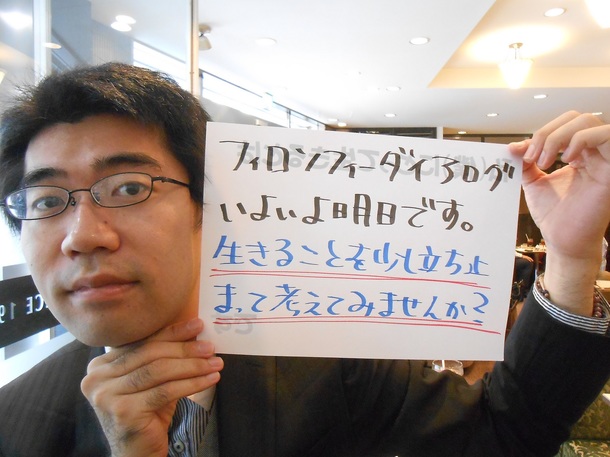 フィロソフィーダイアログ
いよいよ明日です。
生きることを少し立ち止
まって考えてみませんか?
CE 19